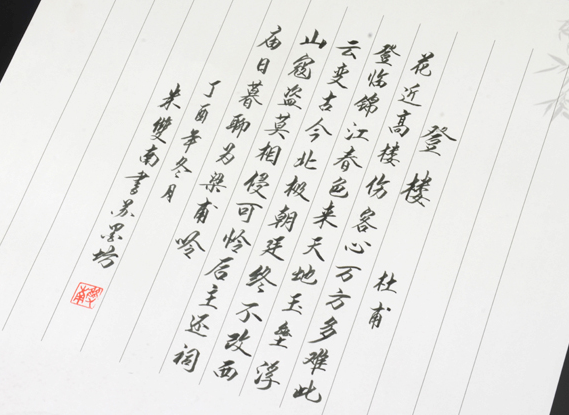 登楼 杜甫
花近高楼伤客心万方多难此
登临錦江春色来天地玉垒浮
云变古今北极朝廷终不改西
山寇盗莫相侵可怜后主还祠
庙日暮聊为梁甫吟
丁酉年冬月
朱雙南書苏墨坊